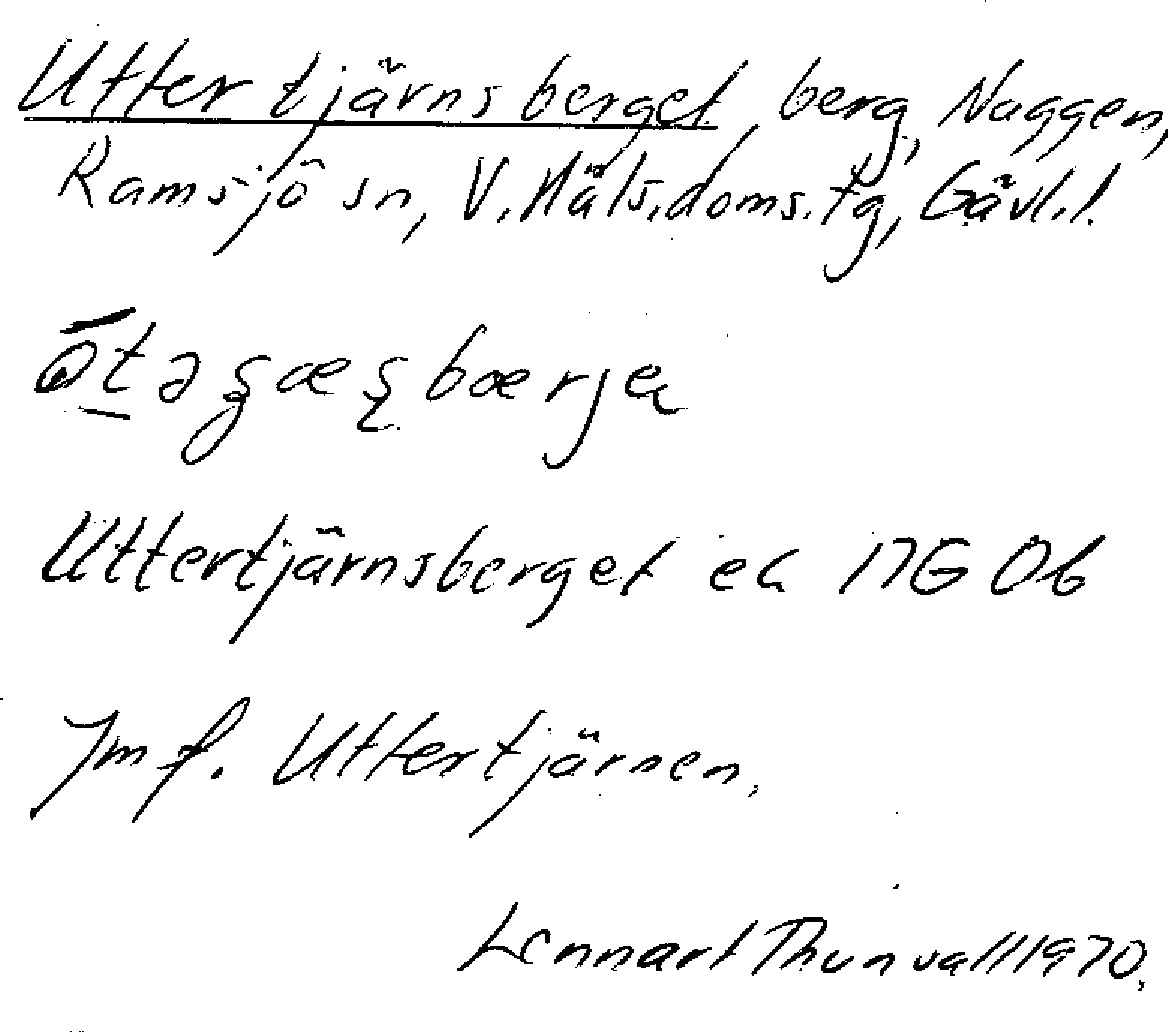 Uttertjärnsberget, berg, Naggen,
Ramsjö sn, V. Häls. doms. tg, Gävl. l.
Uttertjärnsberget ek 17G 0b
Jmf. Uttertjärnen.
Lennart Thunvall 1970.